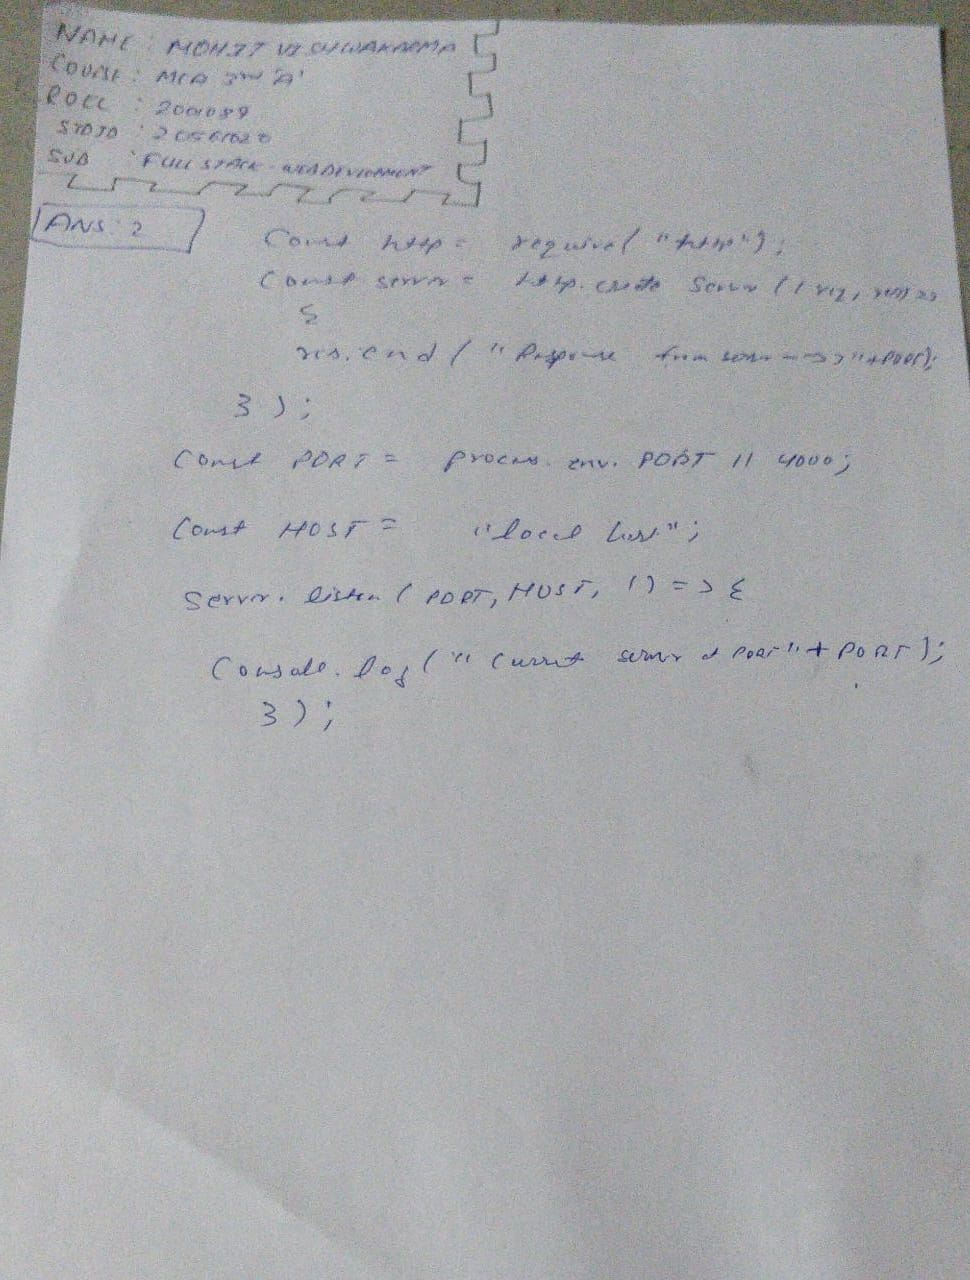 NAME : MOHIT VISHWAKARMA
COURSE : MCA 3rd 'A'
ROLL : 2001089
STDID :
SUB : FULL STACK WEB DEVELOPMENT
ANS: 2
Const http = require("http");
Const server = http.create Server ((req, res) =>
{
res.end ( "Response from server => "+PORT);
});
Const PORT = process. env. PORT || 4000;
Const HOST = "local host";
Server. listen ( PORT, HOST, () => {
Console. log ( " Current server at PORT" + PORT);
});